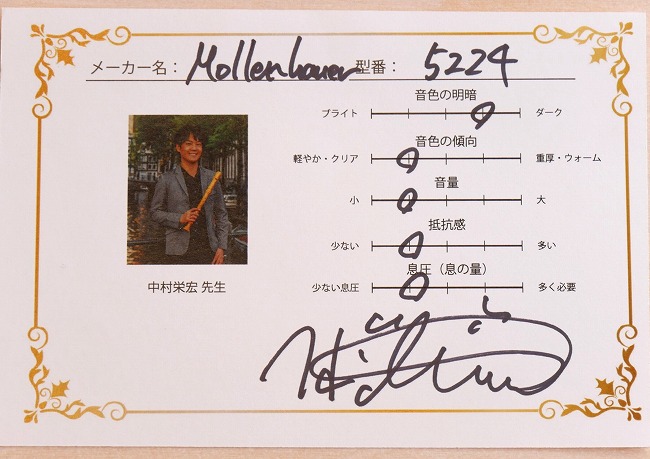 メーカー名： Mollenhauer 型番： 5224
音色の明暗
ブライト ダーク
音色の傾向
軽やか・クリア 重厚・ウォーム
音量
小 大
抵抗感
少ない 多い
息圧（息の量）
少ない息圧 多く必要
中村栄宏 先生